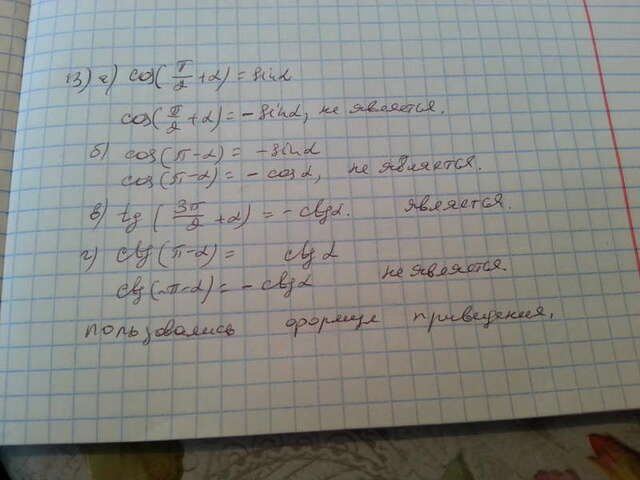 13) а) cos(π/2 + α) = sinα
cos(π/2 + α) = - sinα, не является.
б) cos(π - α) = - sinα
cos(π - α) = - cosα, не является.
в) tg(3π/2 + α) = - ctgα. является.
г) ctg(π - α) = ctgα
ctg(π - α) = - ctgα не является.
пользовались формул приведения.